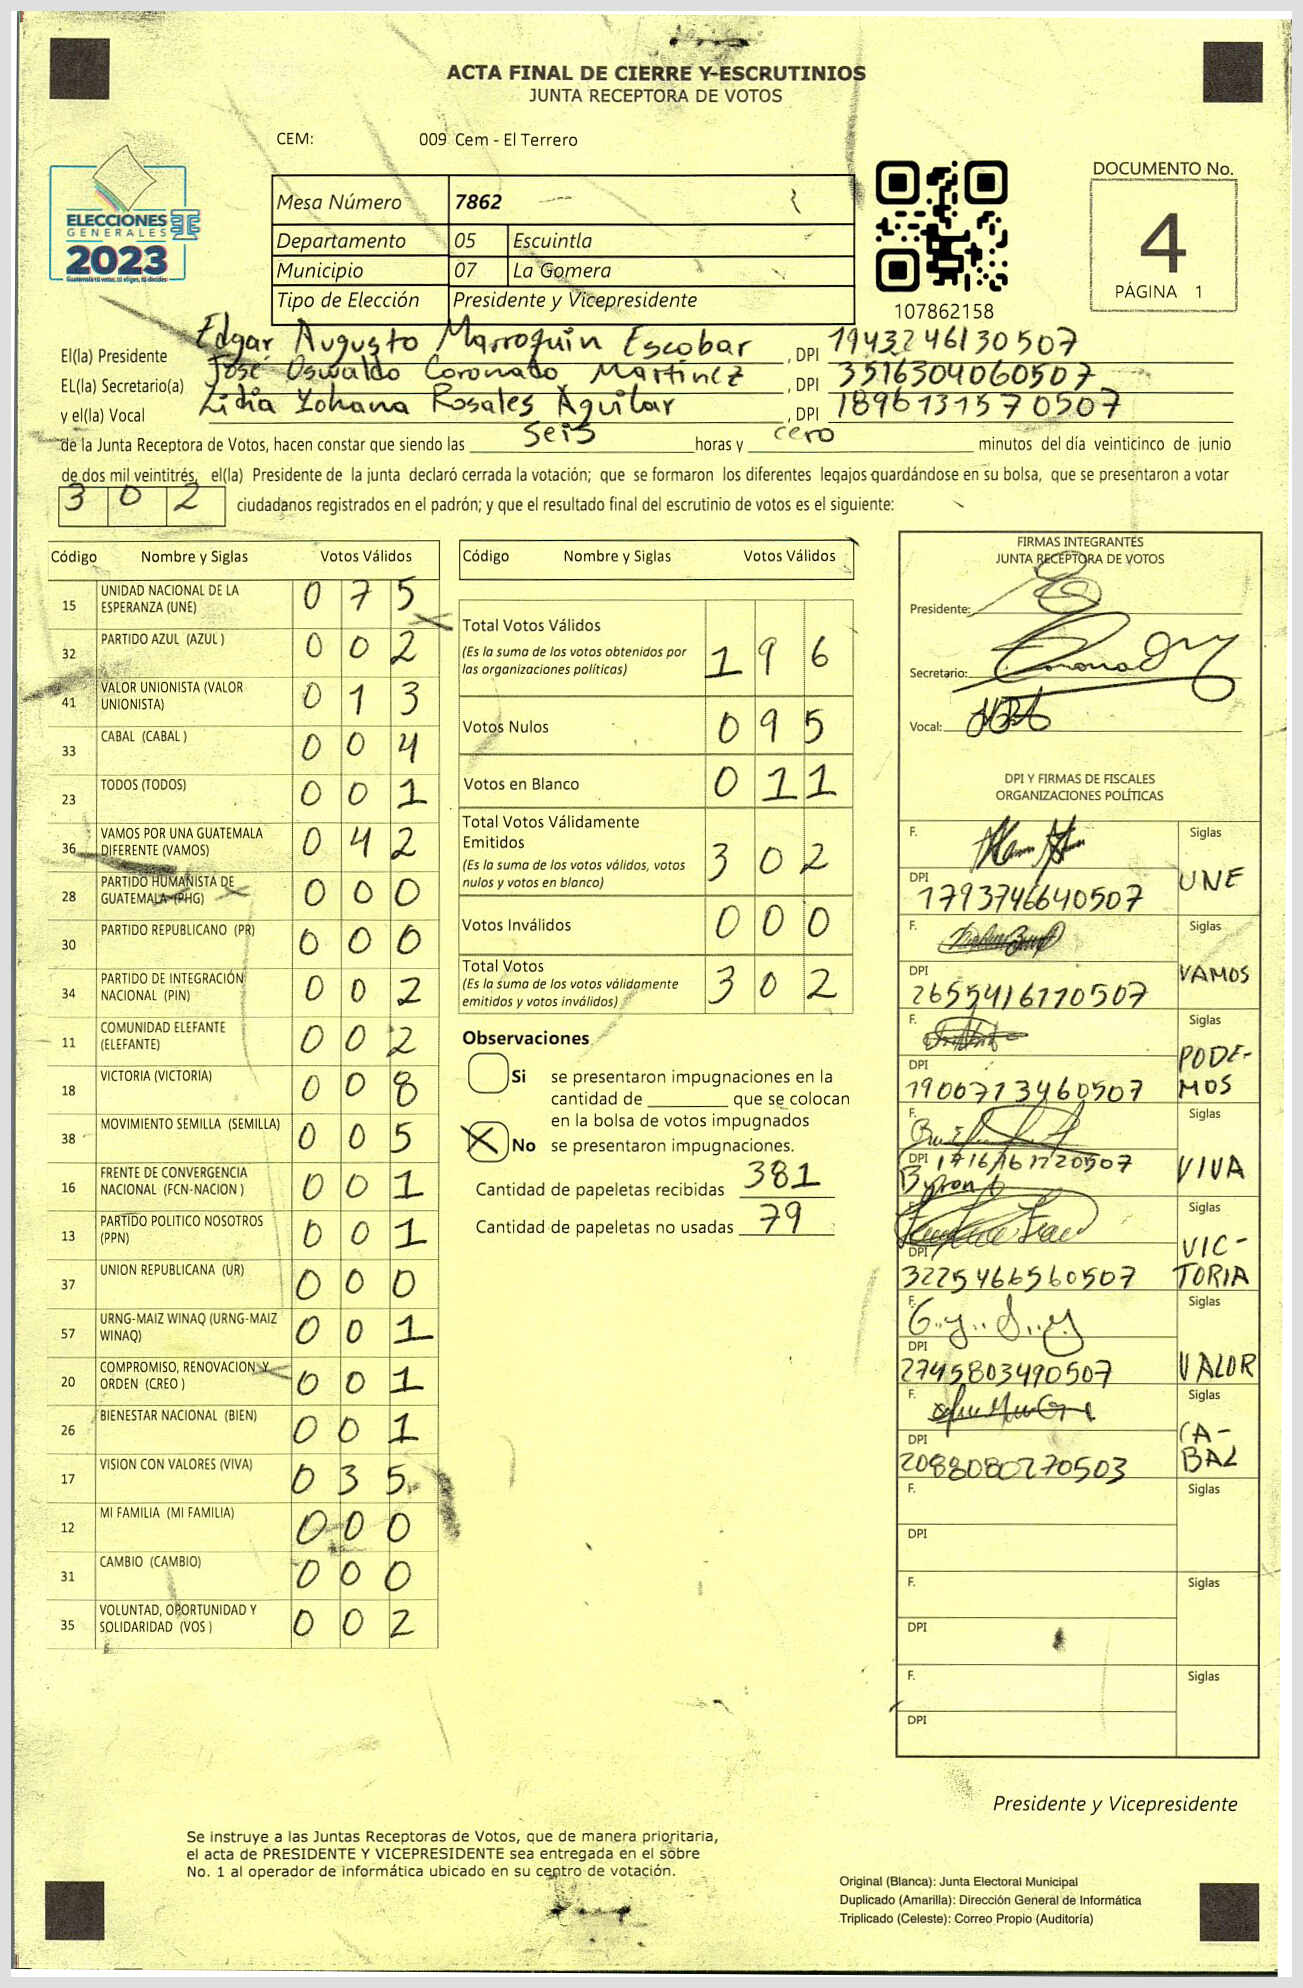 ACTA FINAL DE CIERRE Y ESCRUTINIOS
JUNTA RECEPTORA DE VOTOS
CEM: 009 Cem - El Terrero
ELECCIONES
GENERALES
2023
Mesa Número 7862
Departamento 05 Escuintla
Municipio 07 La Gomera
Tipo de Elección Presidente y Vicepresidente
107862158
DOCUMENTO No.
4
PÁGINA 1
El(la) Presidente Edgar Augusto Marroquin Escobar, DPI 1943246130507
EL(la) Secretario(a) José Oswaldo Coronado Martínez, DPI 3516304060507
y el(la) Vocal Lidia Yohana Rosales Aguilar, DPI 1896131570507
de la Junta Receptora de Votos, hacen constar que siendo las seis horas y cero minutos del día veinticinco de junio
de dos mil veintitrés, el(la) Presidente de la junta declaró cerrada la votación; que se formaron los diferentes legajos guardándose en su bolsa, que se presentaron a votar
302 ciudadanos registrados en el padrón; y que el resultado final del escrutinio de votos es el siguiente:
Código Nombre y Siglas Votos Válidos
15 UNIDAD NACIONAL DE LA ESPERANZA (UNE) 075
32 PARTIDO AZUL (AZUL ) 002
41 VALOR UNIONISTA (VALOR UNIONISTA) 013
33 CABAL (CABAL ) 004
23 TODOS (TODOS) 001
36 VAMOS POR UNA GUATEMALA DIFERENTE (VAMOS) 042
28 PARTIDO HUMANISTA DE GUATEMALA (PHG) 000
30 PARTIDO REPUBLICANO (PR) 000
34 PARTIDO DE INTEGRACIÓN NACIONAL (PIN) 002
11 COMUNIDAD ELEFANTE (ELEFANTE) 002
18 VICTORIA (VICTORIA) 008
38 MOVIMIENTO SEMILLA (SEMILLA) 005
16 FRENTE DE CONVERGENCIA NACIONAL (FCN-NACION ) 001
13 PARTIDO POLITICO NOSOTROS (PPN) 001
37 UNION REPUBLICANA (UR) 000
57 URNG-MAIZ WINAQ (URNG-MAIZ WINAQ) 001
20 COMPROMISO, RENOVACION Y ORDEN (CREO ) 001
26 BIENESTAR NACIONAL (BIEN) 001
17 VISION CON VALORES (VIVA) 035
12 MI FAMILIA (MI FAMILIA) 000
31 CAMBIO (CAMBIO) 000
35 VOLUNTAD, OPORTUNIDAD Y SOLIDARIDAD (VOS ) 002
Código Nombre y Siglas Votos Válidos
Total Votos Válidos 196
(Es la suma de los votos obtenidos por
las organizaciones políticas)
Votos Nulos 095
Votos en Blanco 011
Total Votos Válidamente
Emitidos 302
(Es la suma de los votos válidos, votos
nulos y votos en blanco)
Votos Inválidos 000
Total Votos 302
(Es la suma de los votos válidamente
emitidos y votos inválidos)
Observaciones
Si se presentaron impugnaciones en la
cantidad de ________ que se colocan
en la bolsa de votos impugnados
X No se presentaron impugnaciones.
Cantidad de papeletas recibidas 381
Cantidad de papeletas no usadas 79
FIRMAS INTEGRANTES
JUNTA RECEPTORA DE VOTOS
Presidente:
Secretario:
Vocal:
DPI Y FIRMAS DE FISCALES
ORGANIZACIONES POLÍTICAS
F. Siglas
DPI 1793746640507 UNE
F. Siglas
DPI 2655416170507 VAMOS
F. Siglas
DPI 1900713460507 PODE-MOS
F. Siglas
DPI VIVA
Byron
F. Siglas
DPI 3225466560507 VIC-TORIA
F. Siglas
DPI 2745803490507 VALOR
F. Siglas
DPI 2088080270503 CA-BAL
F. Siglas
DPI
F. Siglas
DPI
F. Siglas
DPI
Presidente y Vicepresidente
Se instruye a las Juntas Receptoras de Votos, que de manera prioritaria,
el acta de PRESIDENTE Y VICEPRESIDENTE sea entregada en el sobre
No. 1 al operador de informática ubicado en su centro de votación.
Original (Blanca): Junta Electoral Municipal
Duplicado (Amarilla): Dirección General de Informática
Triplicado (Celeste): Correo Propio (Auditoría)